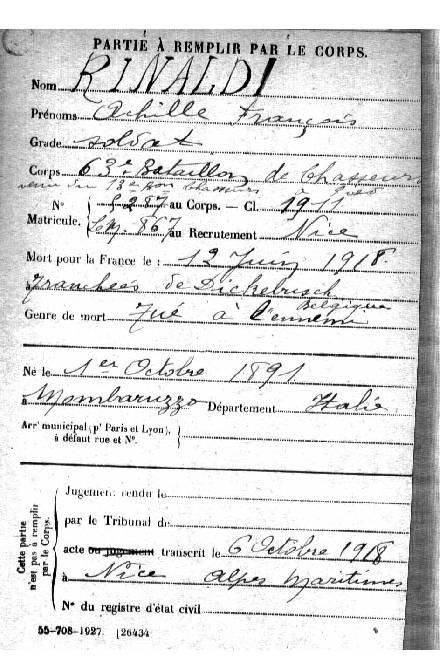 PARTIE À REMPLIR PAR LE CORPS.
Nom RINALDI
Prénoms Achille François
Grade soldat
Corps 63e Bataillon de Chasseurs
venu du 13e Bon Chasseurs à pied
N° 5287 au Corps. — Cl. 1911
Matricule. 867 au Recrutement Nice
Mort pour la France le : 12 Juin 1918.
à Tranchées de Dickebusch
Belgique
Genre de mort Tué à l'ennemi
Né le 1er Octobre 1891
à Mombaruzzo Département Italie
Arrt municipal (pr Paris et Lyon),
à défaut rue et N°.
Cette partie
n'est pas à remplir
par le Corps.
Jugement rendu le
par le Tribunal de
acte ou jugement transcrit le 6 Octobre 1918
à Nice Alpes Maritimes
N° du registre d'état civil
55-708-1927. [26434